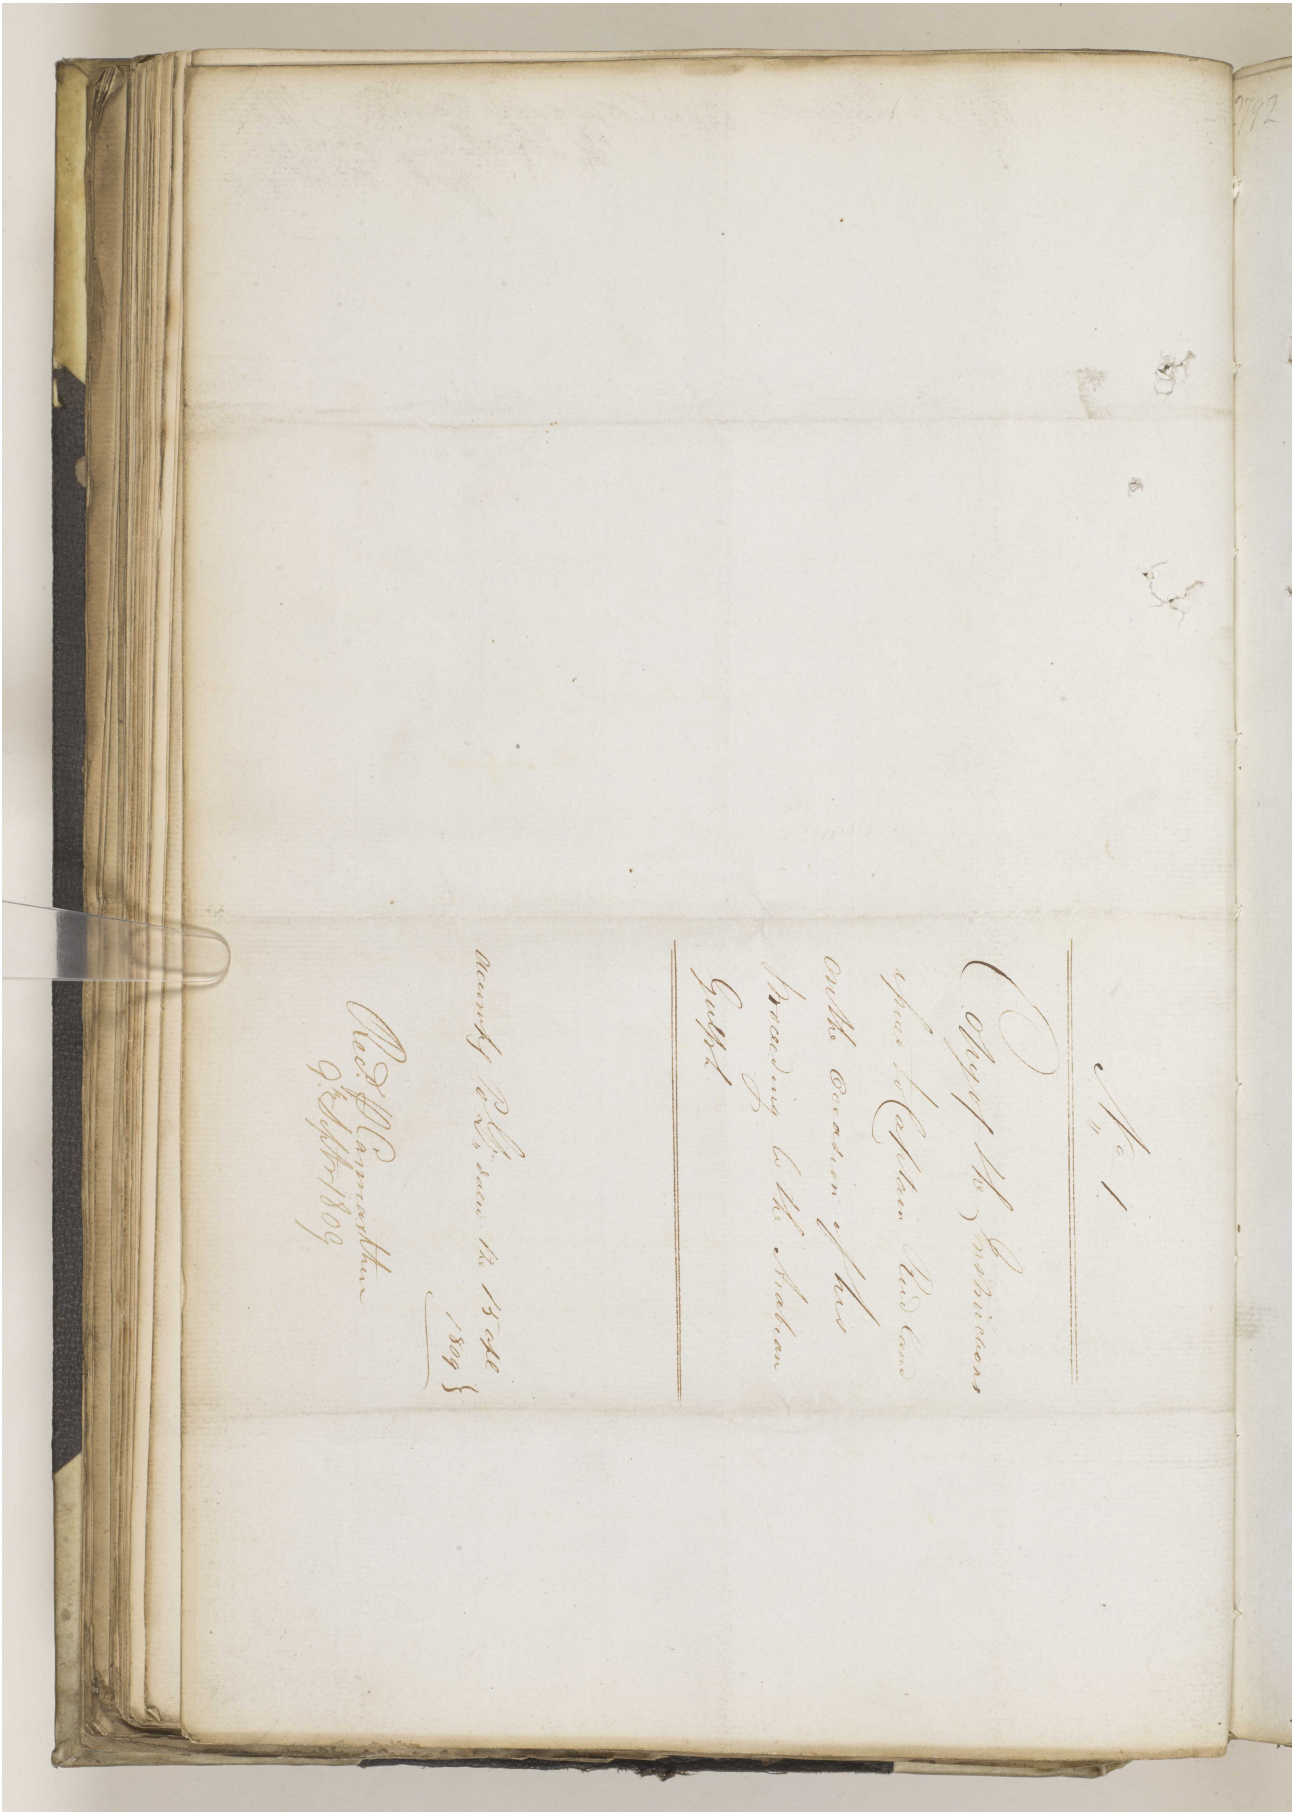 No. 1.
Copy of the Instructions
issued to Captain Rudland
on the Occasion of his
Proceeding to the Arabian
Gulph
accomp.g Lr. dated the 15 Apl
1809
Rec.d p Carmarthen
9th. Septr. 1809
2792